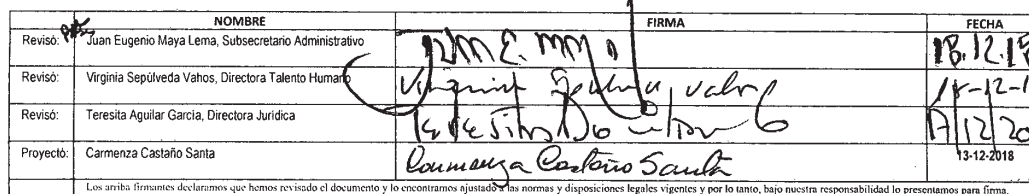 NOMBRE FIRMA FECHA
Revisó: Juan Eugenio Maya Lema, Subsecretario Administrativo 18.12.18
Revisó: Virginia Sepúlveda Vahos, Directora Talento Humano Virginia Sepulveda Vahos
Revisó: Teresita Aguilar García, Directora Jurídica 17/12/20
Proyectó: Carmenza Castaño Santa Carmenza Castaño Santa 13-12-2018
Los arriba firmantes declaramos que hemos revisado el documento y lo encontramos ajustado a las normas y disposiciones legales vigentes y por lo tanto, bajo nuestra responsabilidad lo presentamos para firma.